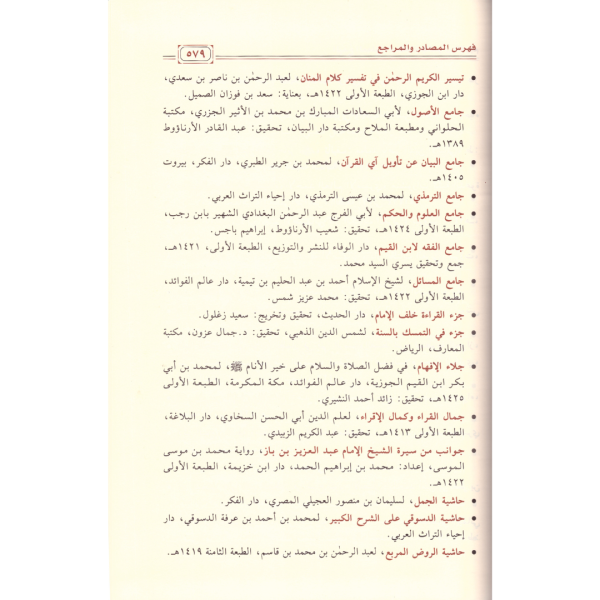 فهرس المصادر والمراجع
٥٧٩
• تيسير الكريم الرحمٰن في تفسير كلام المنان، لعبد الرحمٰن بن ناصر بن سعدي،
دار ابن الجوزي، الطبعة الأولى ١٤٢٢هـ، بعناية: سعد بن فوزان الصميل.
• جامع الأصول، لأبي السعادات المبارك بن محمد بن الأثير الجزري، مكتبة
الحلواني ومطبعة الملاح ومكتبة دار البيان، تحقيق: عبد القادر الأرناؤوط
١٣٨٩هـ.
• جامع البيان عن تأويل آي القرآن، لمحمد بن جرير الطبري، دار الفكر، بيروت
١٤٠٥هـ.
• جامع الترمذي، لمحمد بن عيسى الترمذي، دار إحياء التراث العربي.
• جامع العلوم والحكم، لأبي الفرج عبد الرحمٰن البغدادي الشهير بابن رجب،
الطبعة الأولى ١٤٢٤هـ، تحقيق: شعيب الأرناؤوط، إبراهيم باجس.
• جامع الفقه لابن القيم، دار الوفاء للنشر والتوزيع، الطبعة الأولى، ١٤٢١هـ،
جمع وتحقيق يسري السيد محمد.
• جامع المسائل، لشيخ الإسلام أحمد بن عبد الحليم بن تيمية، دار عالم الفوائد،
الطبعة الأولى ١٤٢٢هـ، تحقيق: محمد عزيز شمس.
• جزء القراءة خلف الإمام، دار الحديث، تحقيق وتخريج: سعيد زغلول.
• جزء في التمسك بالسنة، لشمس الدين الذهبي، تحقيق: د.جمال عزون، مكتبة
المعارف، الرياض.
• جلاء الإفهام، في فضل الصلاة والسلام على خير الأنام ﷺ، لمحمد بن أبي
بكر ابن القيم الجوزية، دار عالم الفوائد، مكة المكرمة، الطبعة الأولى
١٤٢٥هـ، تحقيق: زائد أحمد النشيري.
• جمال القراء وكمال الإقراء، لعلم الدين أبي الحسن السخاوي، دار البلاغة،
الطبعة الأولى ١٤١٣هـ، تحقيق: عبد الكريم الزبيدي.
• جوانب من سيرة الشيخ الإمام عبد العزيز بن باز، رواية محمد بن موسى
الموسى، إعداد: محمد بن إبراهيم الحمد، دار ابن خزيمة، الطبعة الأولى
١٤٢٢هـ.
• حاشية الجمل، لسليمان بن منصور العجيلي المصري، دار الفكر.
• حاشية الدسوقي على الشرح الكبير، لمحمد بن أحمد بن عرفة الدسوقي، دار
إحياء التراث العربي.
• حاشية الروض المربع، لعبد الرحمٰن بن محمد بن قاسم، الطبعة الثامنة ١٤١٩هـ.